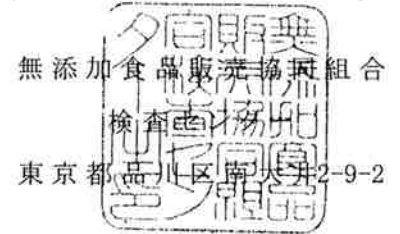 無添加食品販売協同組合
検査センター
東京都品川区南大井2-9-2